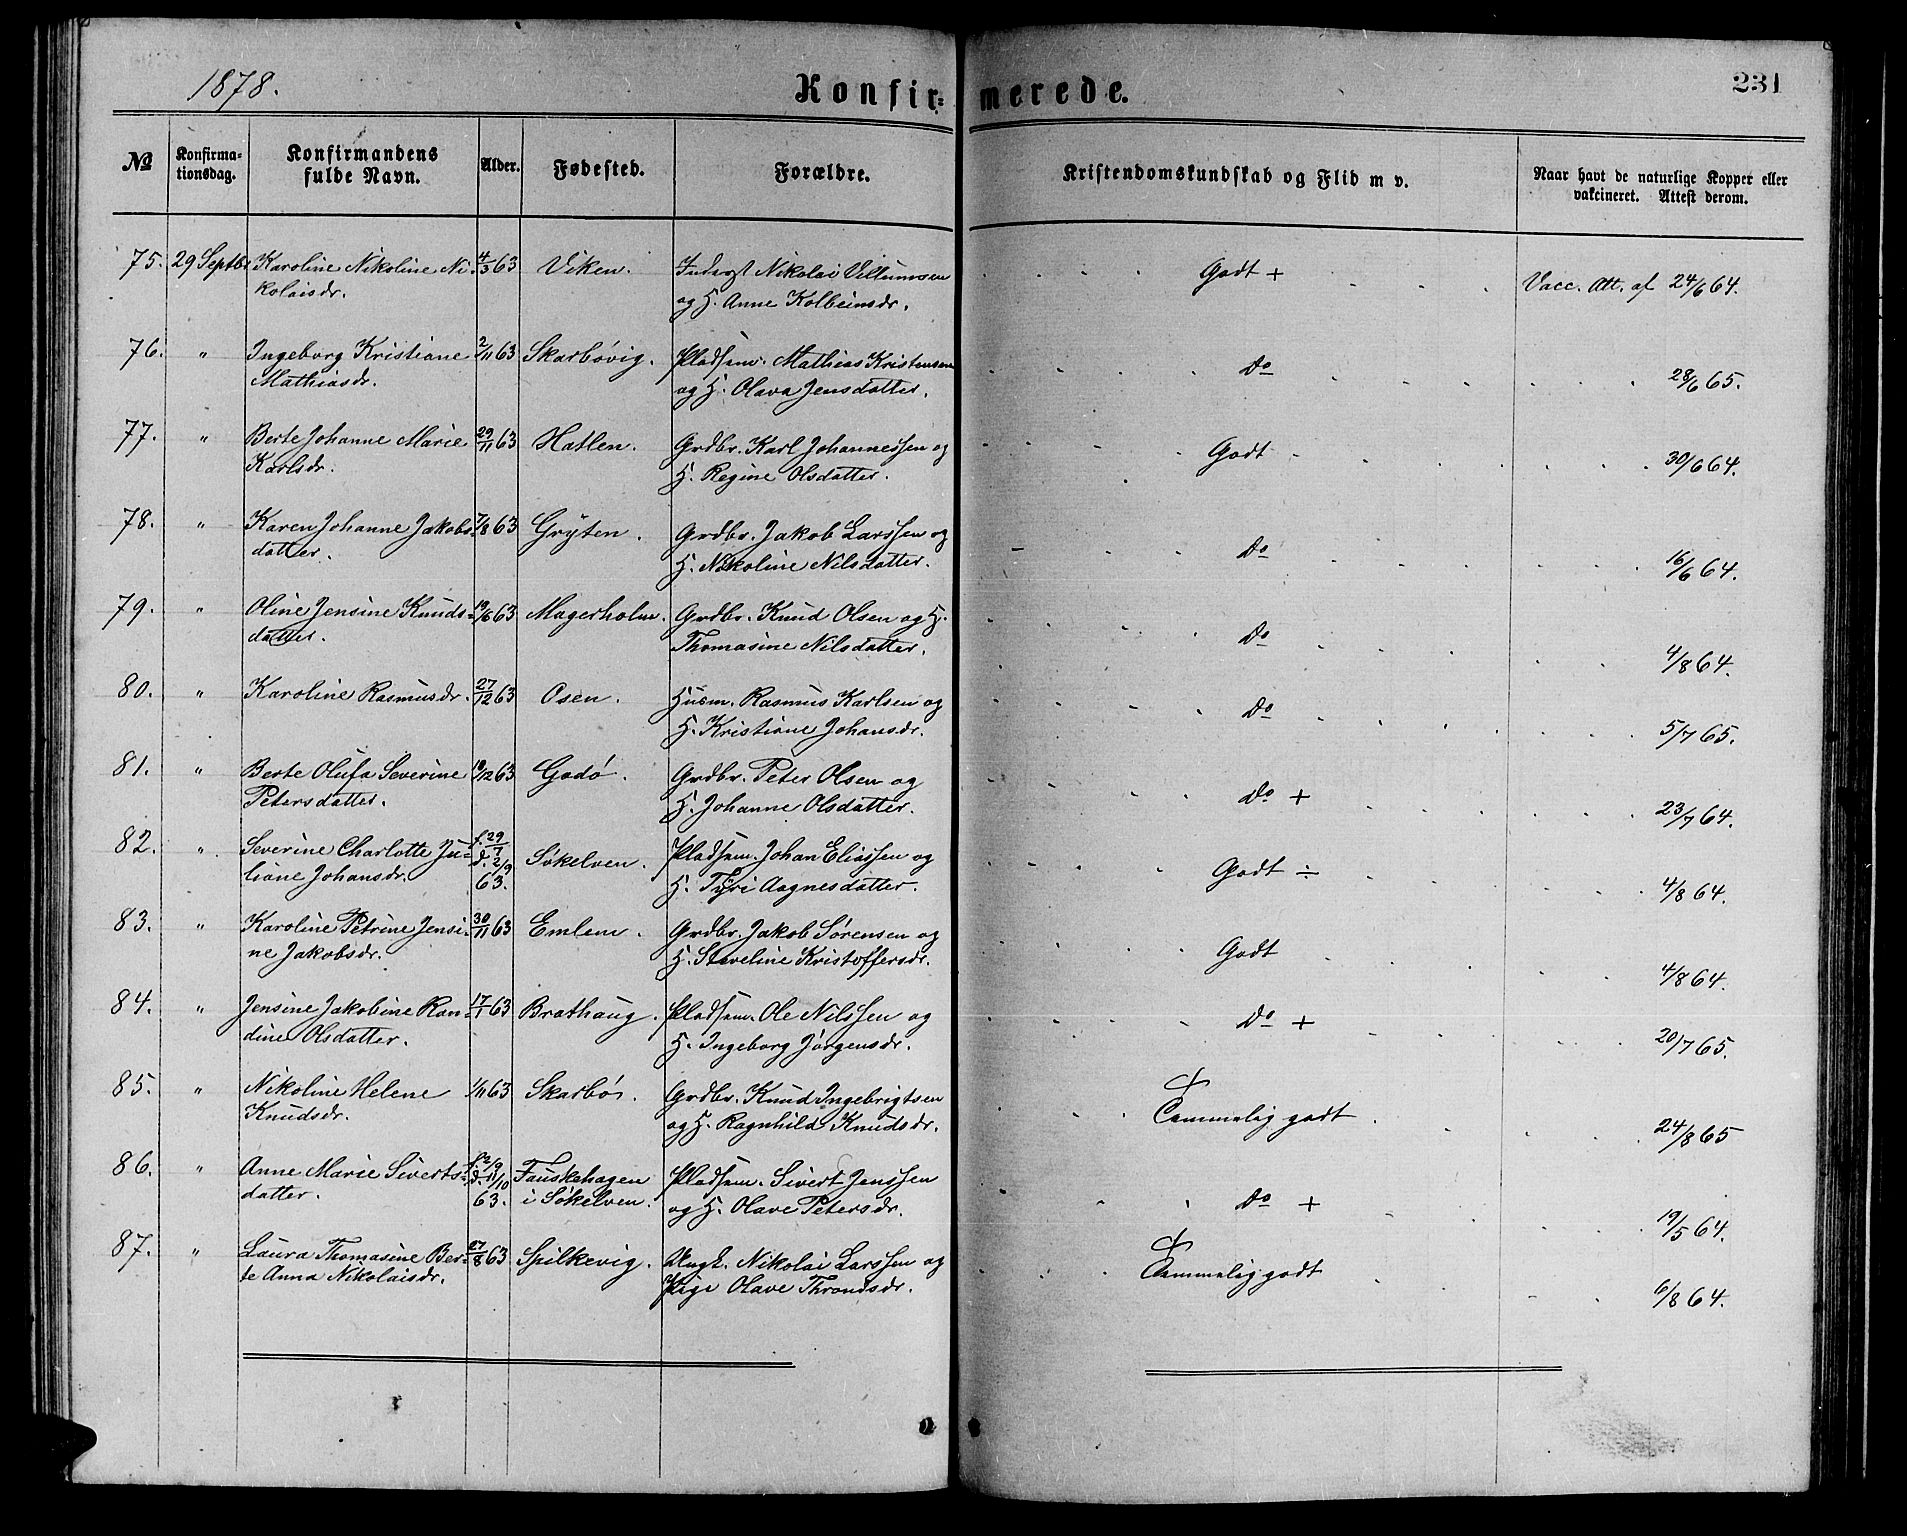 1878.
Konfirmerede.
231
№
Konfirma-
tionsdag.
Konfirmandens
fulde Navn.
Alder.
Fødested.
Forældre.
Kristendomskundskab og Flid m v.
Naar havt de naturlige Kopper eller
vakcineret. Attest derom.
75. 29 Septbr Karoline Nikoline Ni- 4/3 63 Viken. Inderst Nikolai Villumsen Godt + Vacc. Att. af 24/6 64.
kolaisdr. og H. Anne Kolbeinsdr.
76. " Ingeborg Kristiane 2/11 63 Skarbövig. Pladsem. Mathias Kristensen Do 28/6 65.
Mathiasdr. og H. Olava Jensdatter.
77. " Berte Johanne Marie 29/11 63 Hatlen. Grdbr. Karl Johannessen og Godt 30/6 64.
Karlsdr. H. Regine Olsdatter.
78. " Karen Johanne Jakobs- 7/8 63 Gryten. Grdbr. Jakob Larssen og Do 16/6 64.
datter. H. Nikoline Nilsdatter.
79. " Oline Jensine Knuds- 19/6 63 Magerholm. Grdbr. Knud Olsen og H. Do 4/8 64.
datter. Thomasine Nilsdatter.
80. " Karoline Rasmusdr. 27/12 63 Osen. Husm. Rasmus Karlsen og Do 5/7 65.
H. Kristiane Johansdr.
81. " Berte Olufa Severine 19/12 63 Godö. Grdbr. Peter Olsen og Do + 23/7 64.
Petersdatter. H. Johanne Olsdatter.
82. " Severine Charlotte Ju- f. 29/7 d. 2/9 63. Sökelven. Pladsem. Johan Eliassen og Godt ÷ 4/8 64.
liane Johansdr. H. Tyri Aagnesdatter.
83. " Karoline Petrine Jensi- 30/11 63 Emlem. Grdbr. Jakob Sørensen og Godt 4/8 64.
ne Jakobsdr. H. Staveline Kristoffersdr.
84. " Jensine Jakobine Ran- 17/1 63 Brathaug. Pladsem. Ole Nilssen og Do + 20/7 65.
dine Olsdatter. H. Ingeborg Jörgensdr.
85. " Nikoline Helene 1/11 63 Skarbö. Grdbr. Knud Ingebrigtsen Temmelig godt 24/8 65
Knudsdr. og H. Ragnhild Knudsdr.
86. " Anne Marie Siverts- f. 2/9 d. 11/10 63. Fauskehagen Pladsem. Sivert Jenssen Do + 19/5 64.
datter. i Sökelven. og H. Olave Petersdr.
87. " Laura Thomasine Ber- 27/8 63 Spilkevig. Ungk. Nikolai Larssen og Temmelig godt 6/8 64.
te Anna Nikolaisdr. Pige Olave Throndsdr.